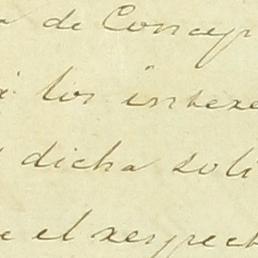 a de Concep
los intere
dicha soli
e el respect